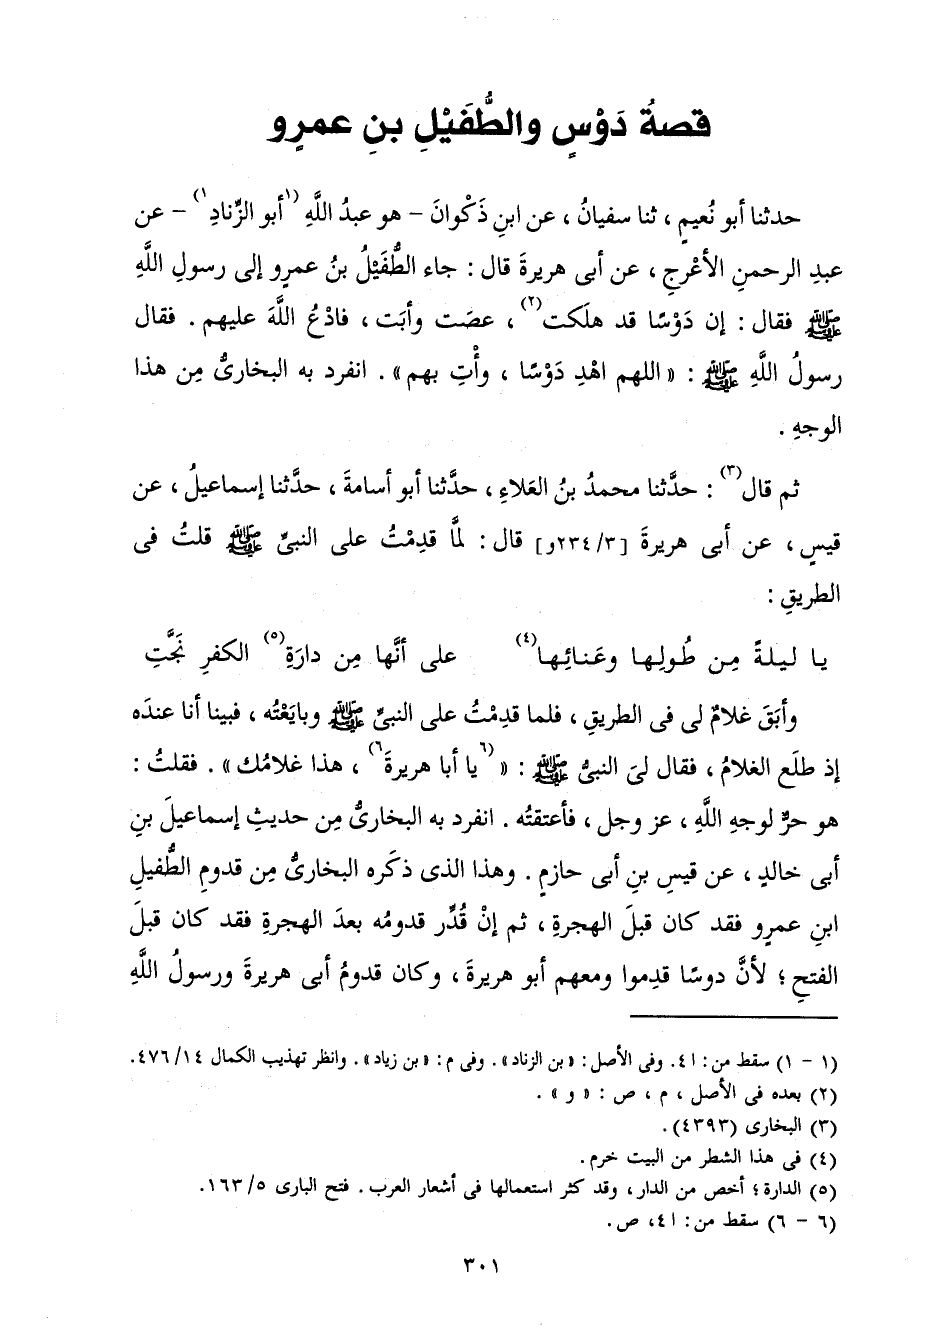 قصةُ دَوْسٍ والطُّفَيْلِ بنِ عمرٍو
حدثنا أبو نُعيمٍ ، ثنا سفيانُ ، عن ابنِ ذَكْوانَ – هو عبدُ اللَّهِ (١أبو الزِّنادِ١) – عن
عبدِ الرحمنِ الأعْرجِ ، عن أبى هريرةَ قال : جاء الطُّفَيْلُ بنُ عمرٍو إلى رسولِ اللَّهِ
ﷺ فقال : إن دَوْسًا قد هلَكت(٢) ، عصَت وأبَت ، فادْعُ اللَّهَ عليهم . فقال
رسولُ اللَّهِ ﷺ : « اللهم اهْدِ دَوْسًا ، وأْتِ بهم » . انفرد به البخارىُّ مِن هذا
الوجهِ .
ثم قال(٣) : حدَّثنا محمدُ بنُ العَلاءِ ، حدَّثنا أبو أسامةَ ، حدَّثنا إسماعيلُ ، عن
قيسٍ ، عن أبى هريرةَ [٢٣٤/٣و] قال : لمَّا قدِمْتُ على النبىِّ ﷺ قلتُ فى
الطريقِ :
يا ليلةً مِن طُولِها وعَنائِها(٤) على أنَّها مِن دارَةِ(٥) الكفرِ نَجَّتِ
وأبَقَ غلامٌ لى فى الطريقِ ، فلما قدِمْتُ على النبىِّ ﷺ وبايَعْتُه ، فبينا أنا عندَه
إذ طلَع الغلامُ ، فقال لىَ النبىُّ ﷺ : « (٦يا أبا هريرةَ٦) ، هذا غلامُك » . فقلتُ :
هو حرٌّ لوجهِ اللَّهِ ، عز وجل ، فأعتقتُه . انفرد به البخارىُّ مِن حديثِ إسماعيلَ بنِ
أبى خالدٍ ، عن قيسِ بنِ أبى حازمٍ . وهذا الذى ذكَره البخارىُّ مِن قدومِ الطُّفيلِ
ابنِ عمرٍو فقد كان قبلَ الهجرةِ ، ثم إنْ قُدِّر قدومُه بعدَ الهجرةِ فقد كان قبلَ
الفتحِ ؛ لأنَّ دوسًا قدِموا ومعهم أبو هريرةَ ، وكان قدومُ أبى هريرةَ ورسولُ اللَّهِ
(١ – ١) سقط من : ا ٤. وفى الأصل : « بن الزناد » . وفى م : « بن زياد » . وانظر تهذيب الكمال ٤٧٦/١٤.
(٢) بعده فى الأصل ، م ، ص : « و » .
(٣) البخارى (٤٣٩٣) .
(٤) فى هذا الشطر من البيت خرم .
(٥) الدارة ؛ أخص من الدار ، وقد كثر استعمالها فى أشعار العرب . فتح البارى ١٦٣/٥.
(٦ – ٦) سقط من : ا ٤، ص .
٣٠١